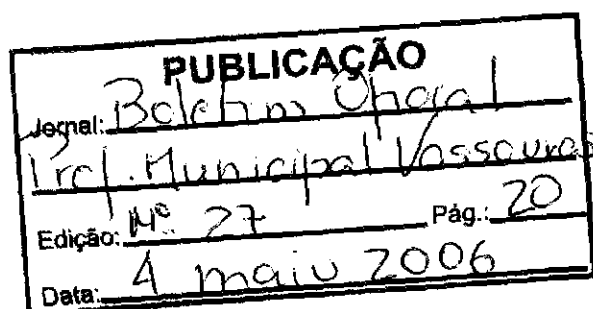 PUBLICAÇÃO
Jornal: Boletim Oficial
Pref. Municipal Vassouras
Edição: Nº 27 Pág.: 20
Data: 4 maio 2006